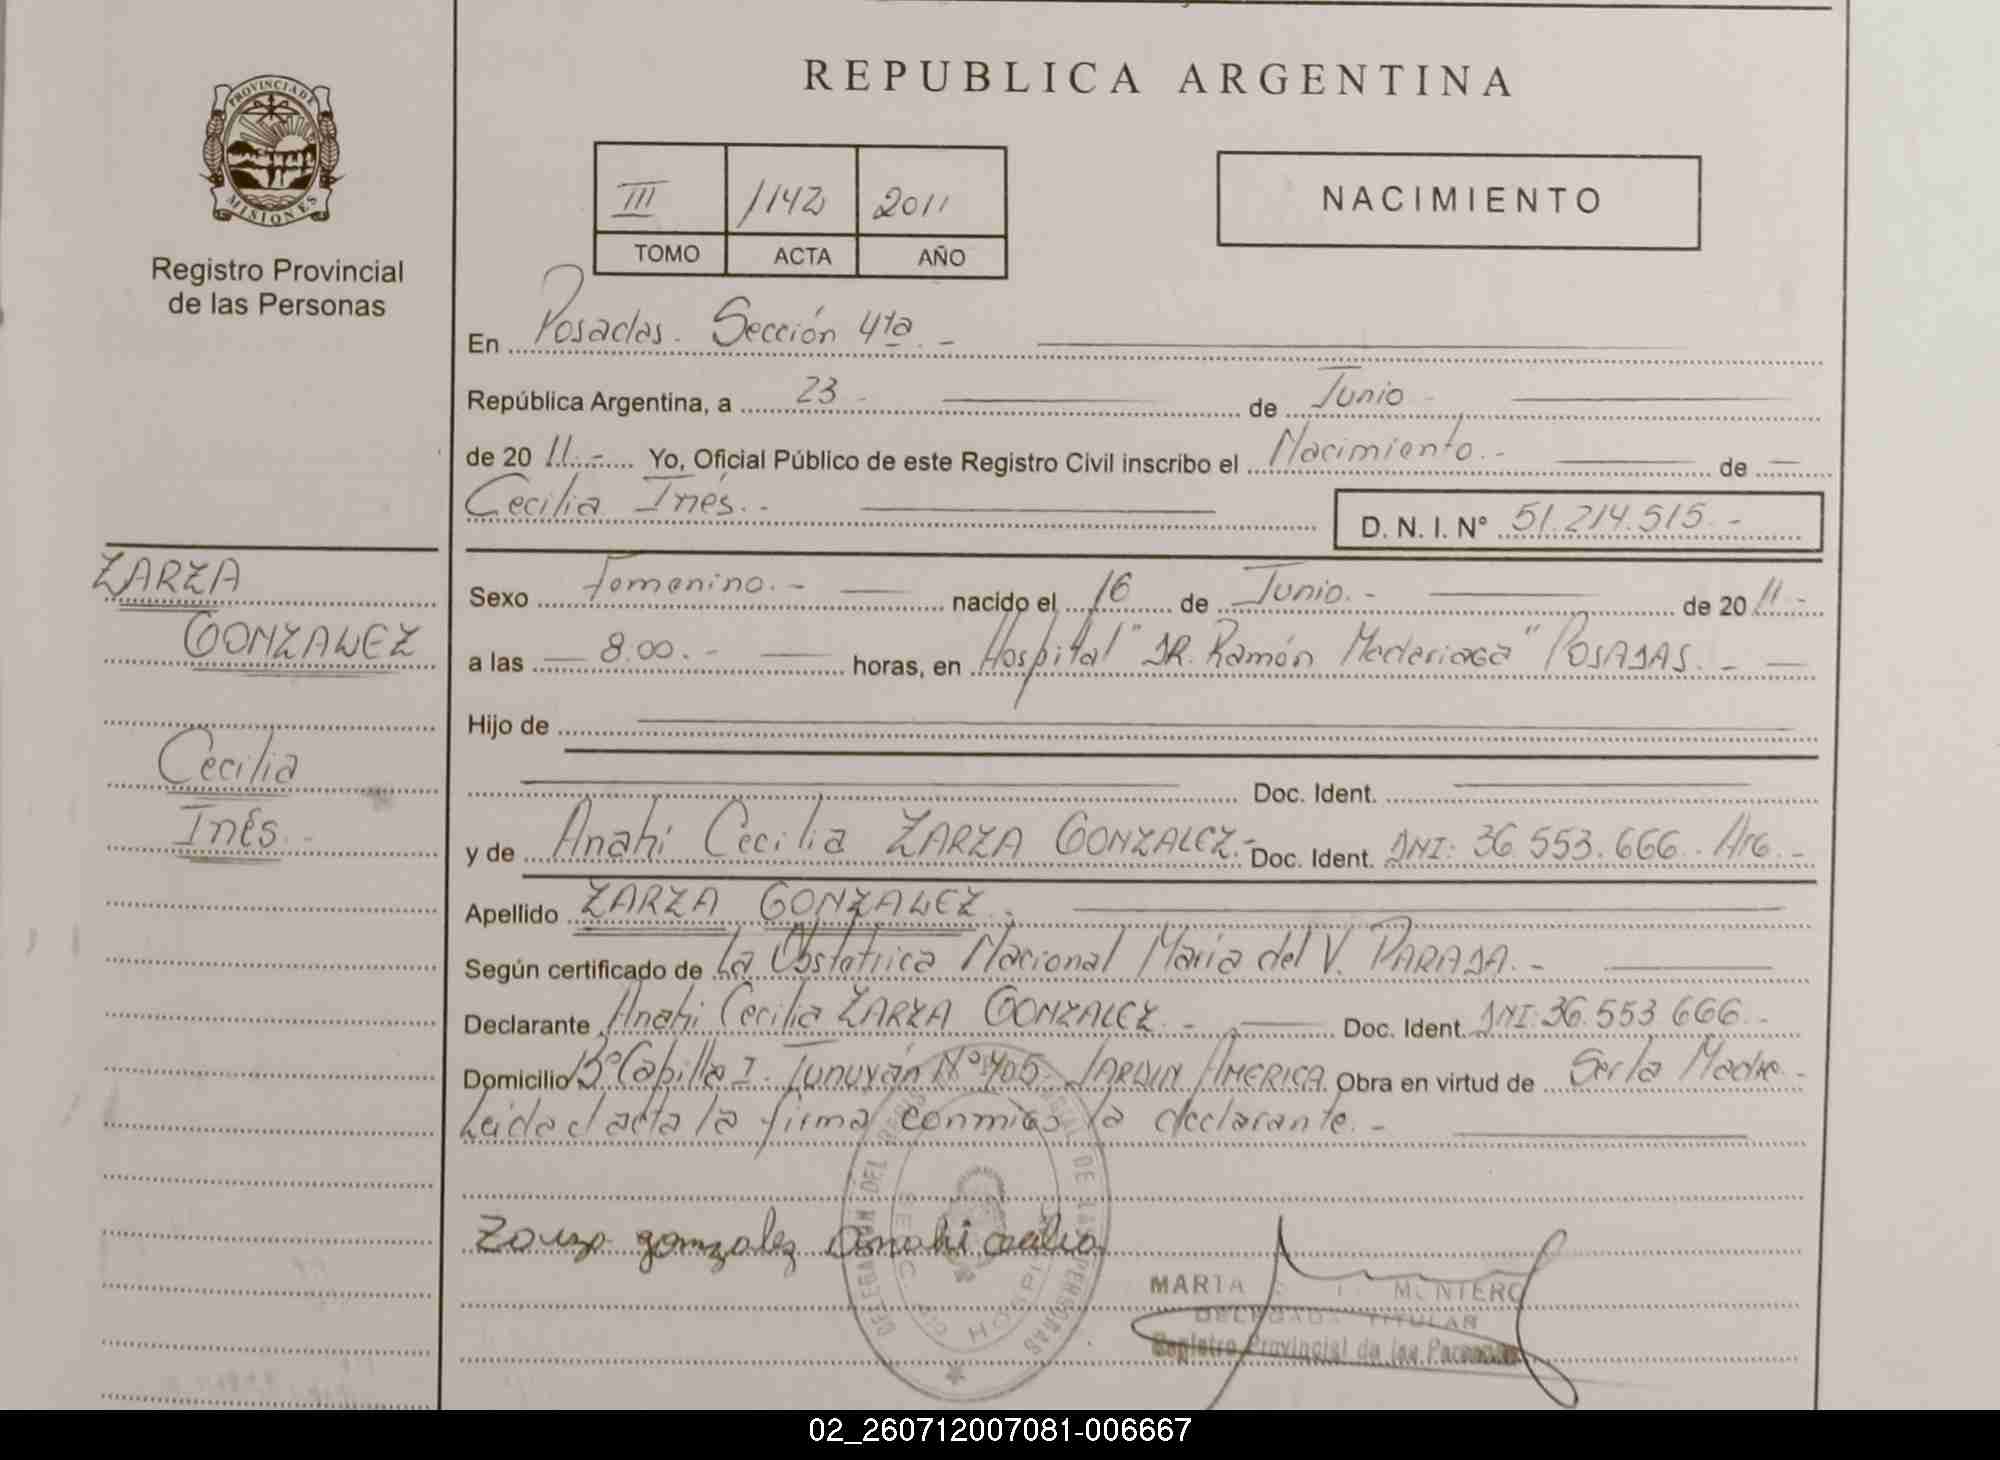 REPUBLICA ARGENTINA
PROVINCIA DE
MISIONES
Registro Provincial
de las Personas
III 1142 2011
TOMO ACTA AÑO
NACIMIENTO
En Posadas. Sección 4ta. -
República Argentina, a 23 - de Junio -
de 20 11.- Yo, Oficial Público de este Registro Civil inscribo el Nacimiento.- de
Cecilia Inés.-
D. N. I. N° 51.214.515.-
ZARZA
GONZALEZ
Cecilia
Inés.-
Sexo Femenino.- nacido el 16 de Junio.- de 20 11.-
a las 8.00.- horas, en Hospital "DR. Ramón Madariaga" POSADAS.-
Hijo de
Doc. Ident.
y de Anahi Cecilia ZARZA GONZALEZ.- Doc. Ident. DNI: 36.553.666. Arg.-
Apellido ZARZA GONZALEZ.-
Según certificado de La Obstetrica Nacional Maria del V. PARADA.-
Declarante Anahi Cecilia ZARZA GONZALEZ.- Doc. Ident. DNI: 36.553.666.-
Domicilio B° Capilla I. Tunuyán N° 405. JARDIN AMERICA. Obra en virtud de Ser la Madre.-
Leida el acta la firma conmigo la declarante.-
Zarza gonzalez Anahi Cecilia
MARTA MONTERO
DELEGADA TITULAR
Registro Provincial de las Personas
02_260712007081-006667